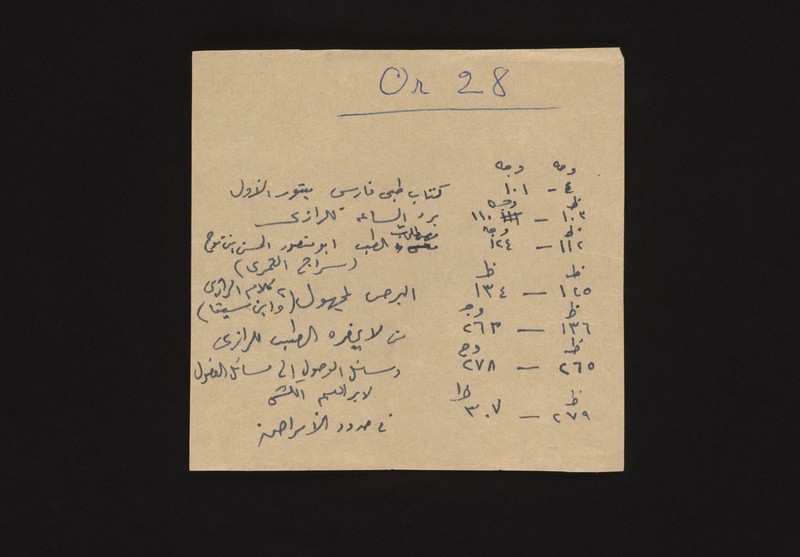 Or 28
وجه وجه
٤ - ١٠١ كتاب طبي فارسي مبتور الأول
ظ وجه
١٠٣ - ١١٠ برء الساعة للرازي
ظ وجه
١١٢ - ١٢٤ مصطلحات الطب ابو منصور الحسن ابن نوح
(سراج القمري)
ظ ظ
١٢٥ - ١٣٤ البرص لمجهول (من كلام الرازي وابن سينا)
ظ وجه
١٣٦ - ٢٦٣ من لا يحضره الطب للرازي
ظ وجه
٢٦٥ - ٢٧٨ وسائل الوصول إلى مسائل الفصول
لابراهيم الكشي
ظ ظ
٢٧٩ - ٣٠٧ في حدود الأمراض